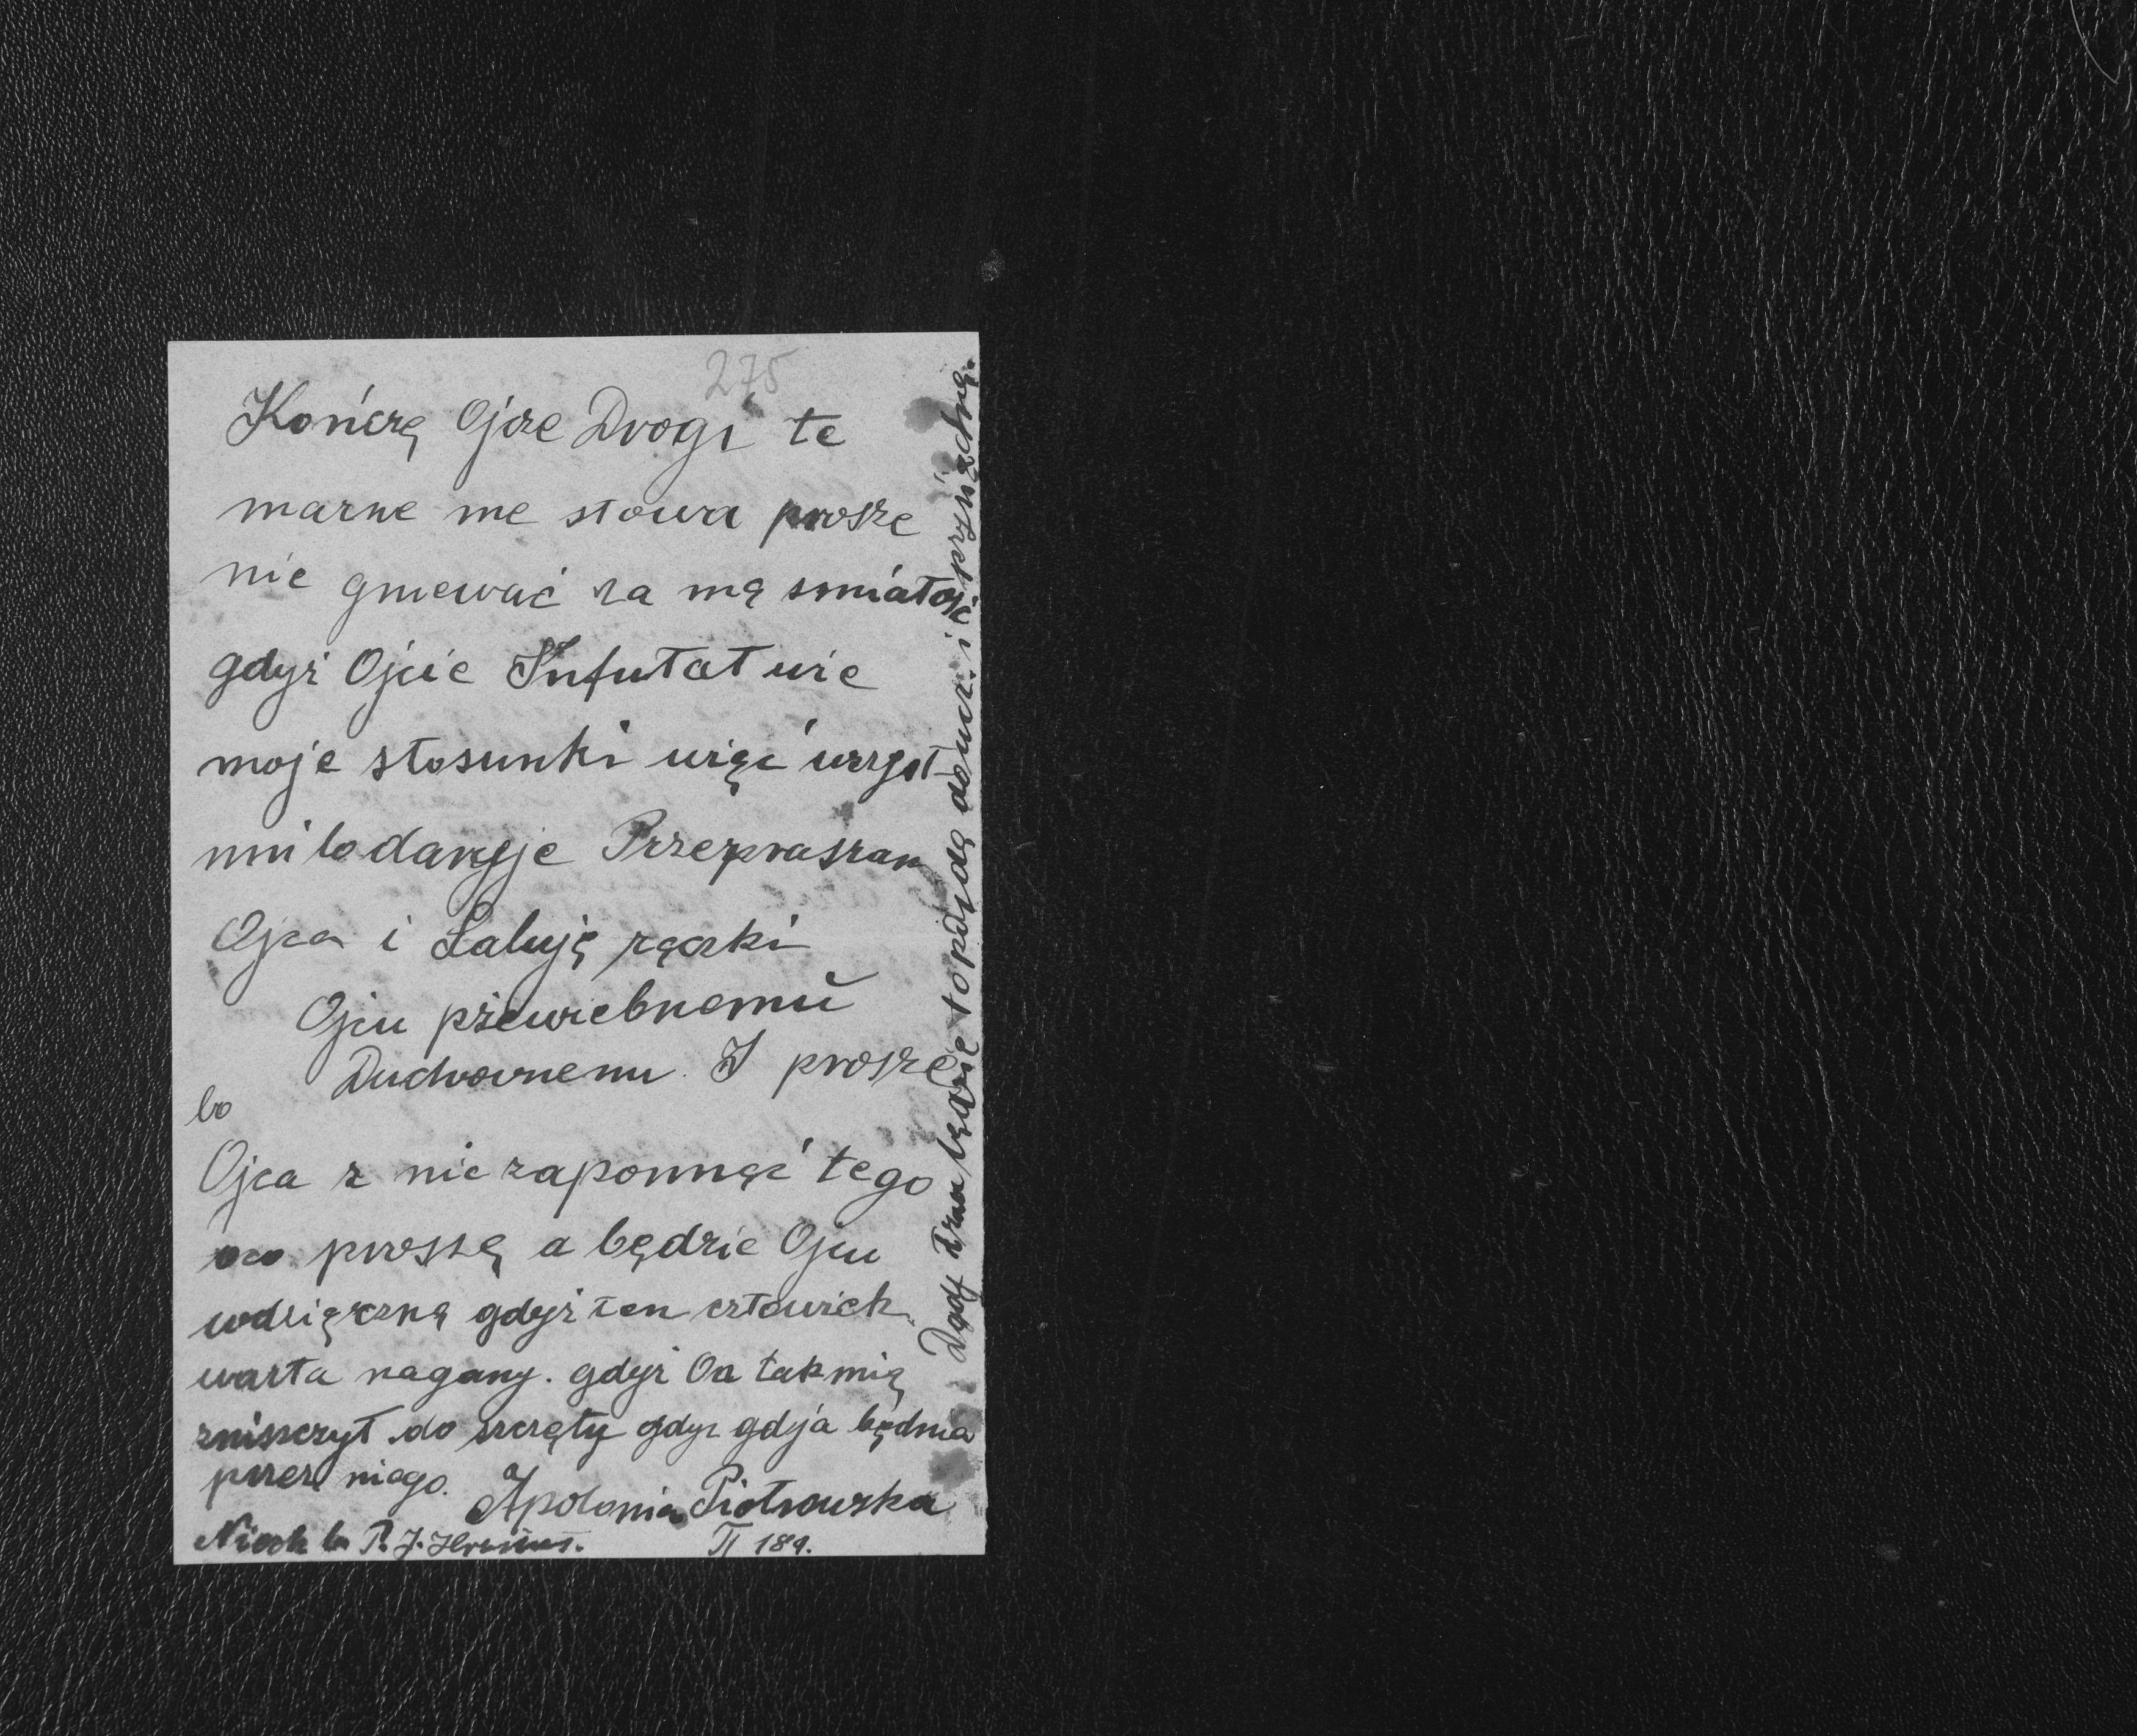 275
Kończę Ojcze Drogi te
marne me słowa prosze
nie gniewać za mą smiałość
gdyż Ojcie Infułat wie
moje stosunki więć wzgl
mi to daruje Przepraszam
Ojca i Całuję rączki
Ojcu przewiebnemu
Duchownemu. I prosze
bo
Ojca z nie zapomnąć tego
oco proszę a będzie Ojcu
wdzięczną gdyż ten człowiek
warta nagany. gdyż On tak mię
zniszczył do szczęty gdyż gdyja będnia
przez niego.
Apolonia Piotrowska
P. J. II 189.
będzie to pójdę i przyjizdną.